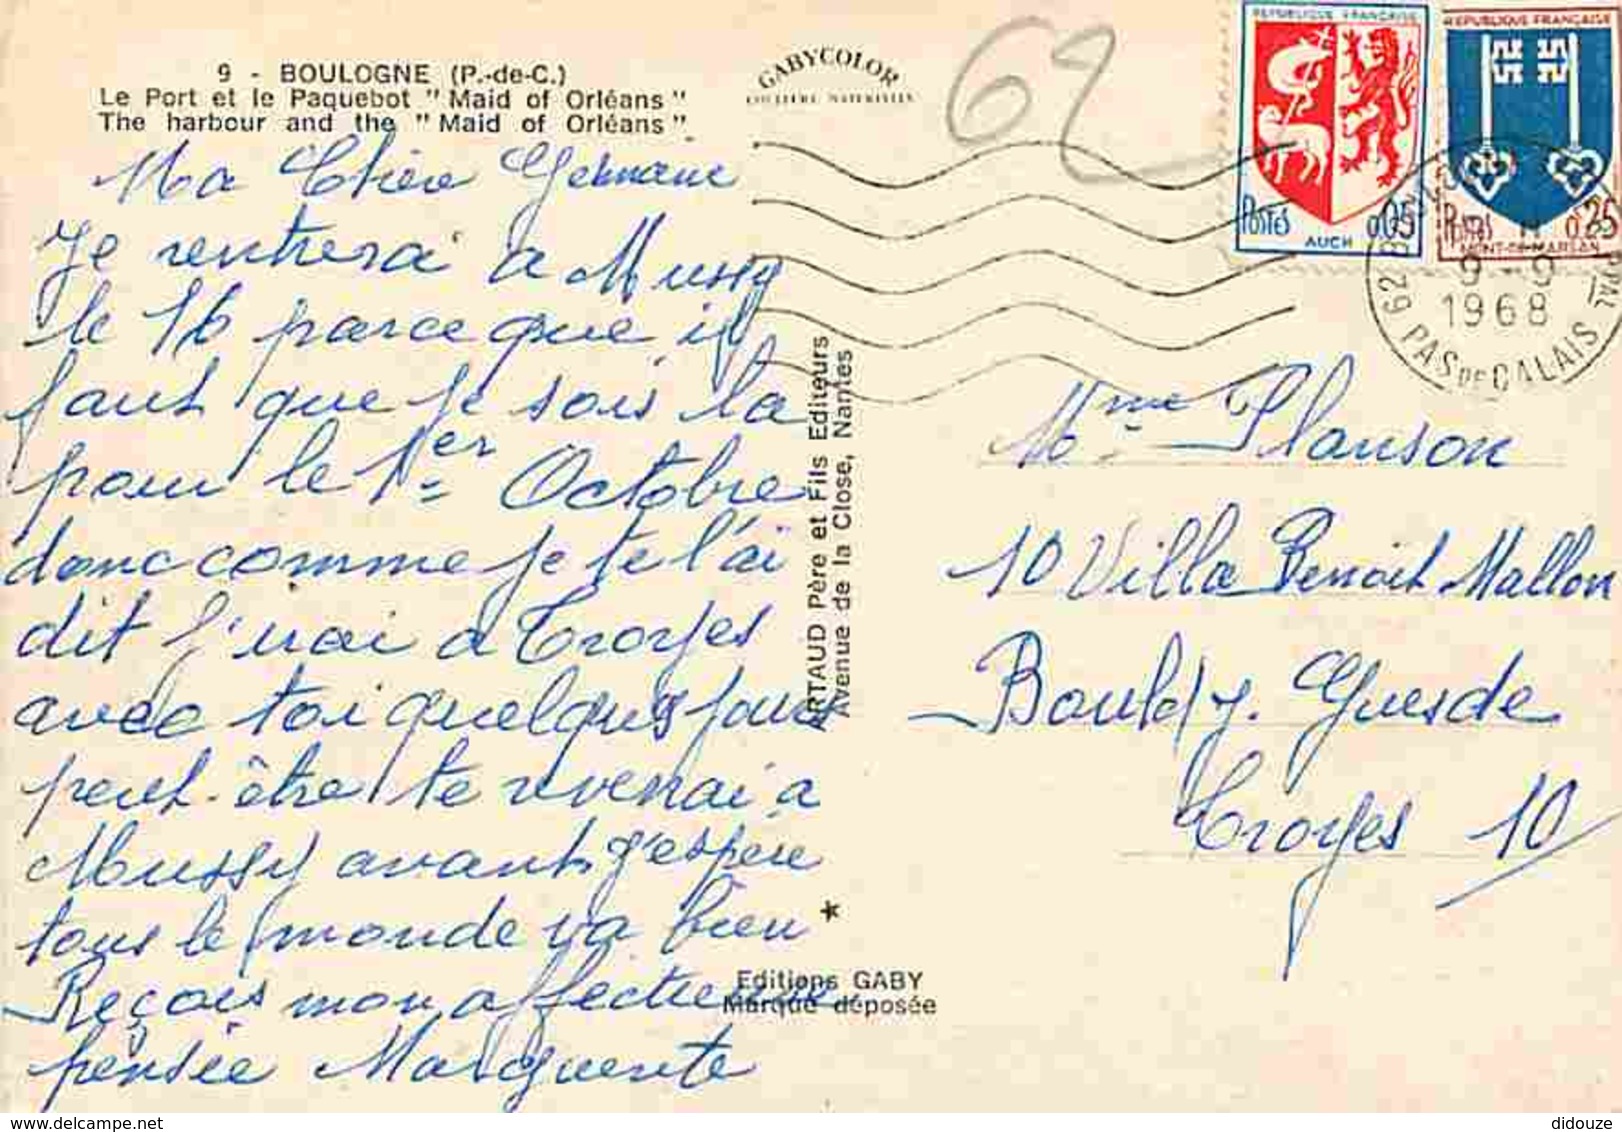 9 - BOULOGNE (P.-de-C.)
Le Port et le Paquebot "Maid of Orléans"
The harbour and the "Maid of Orléans"
GABYCOLOR
COULEURS NATURELLES
62
REPUBLIQUE FRANÇAISE
POSTES 0,05
AUCH
REPUBLIQUE FRANÇAISE
Postes 0,25
MONT-DE-MARSAN
9 - 9
1968
62 PAS DE CALAIS
Ma Chère Germaine
Je rentrerai a Mussy
le 16 parce que il
faut que je sois la
pour le 1er Octobre
donc comme je te l'ai
dit j'irai a Troyes
avec toi quelques jours
peut-être te revenai a
Mussy avant j'espère
tous le monde va bien
Reçois mon affectueuse
pensée Marguerite
ARTAUD Père et Fils Editeurs
Avenue de la Close, Nantes
*
Editions GABY
Marque déposée
Mme Planson
10 Villa Benoit Mallon
Bould J. Guesde
Troyes 10
didouze @ delcampe.net